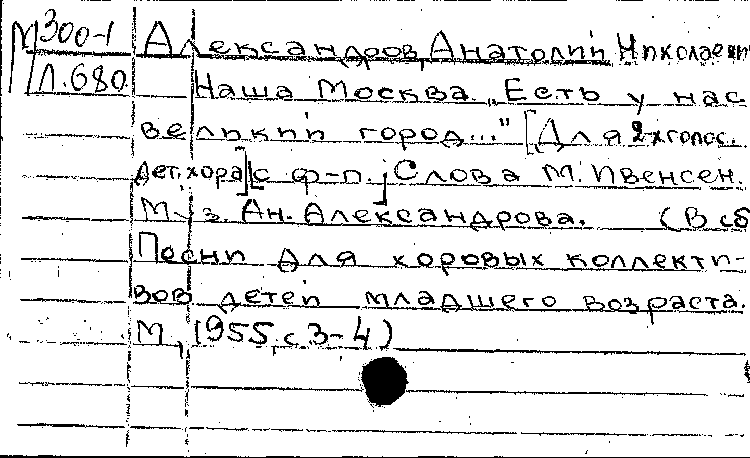 М300-1 Александров, Анатолий Николаевич
Л.680 Наша Москва. „Есть у нас
великий город..." [Для 2хголос.
дет.хора] [с ф-п.] Слова М. Ивенсен.
Муз. Ан. Александрова. (В сб
Песни для хоровых коллекти-
вов детей младшего возраста.
М, 1955, с 3-4)